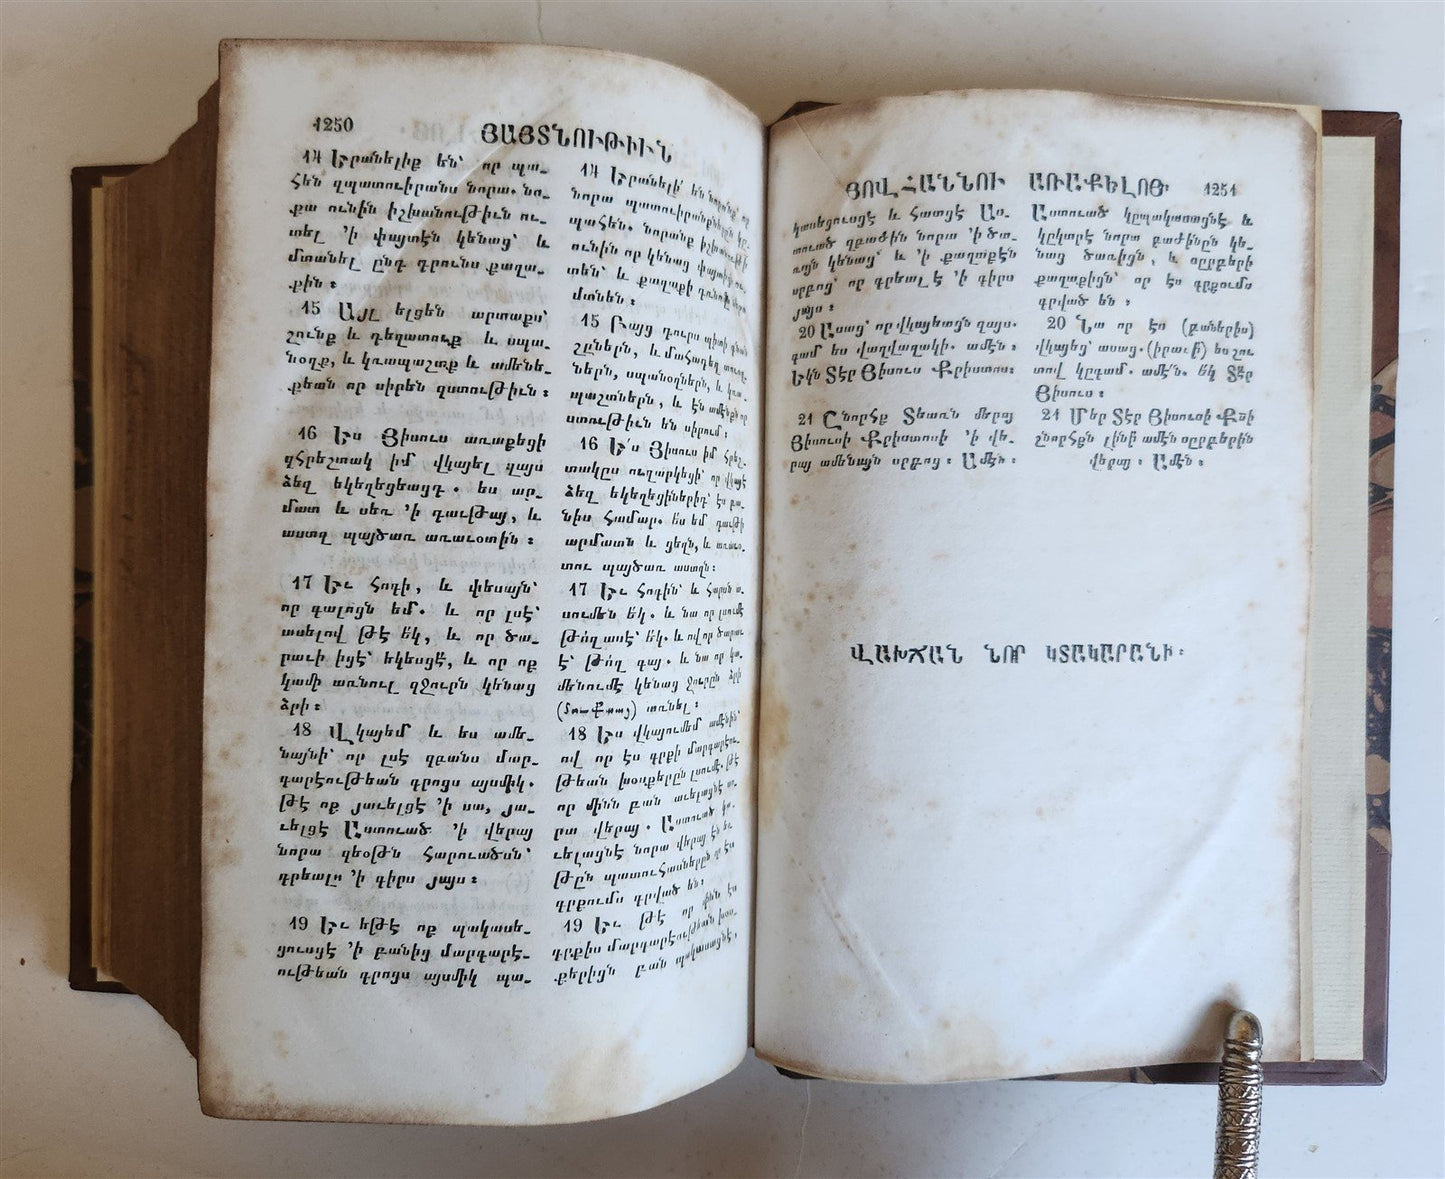 1250 ՅԱՅՏՆՈՒԹԻՒՆ
14 Երանելիք են՝ որ պա-
հեն զպատուիրանս նորա. նո-
քա ունին իշխանութիւն ու-
տել ՚ի փայտէն կենաց՝ և
մտանել ընդ դրունս քաղա-
քին :
15 Այլ ելցեն արտաքս՝
շունք և դեղատուք և սպա-
նօղք, և կռապաշտք և ամենե-
քեան որ սիրեն զստութիւն :
16 Ես Յիսուս առաքեցի
զհրեշտակ իմ վկայել զայս
ձեզ եկեղեցեացդ . ես ար-
մատ և սեռ ՚ի դաւթայ, և
աստղ պայծառ առաւօտին :
17 Եւ հոգի, և փեսայն՝
որ գալոցն եմ. և որ լսէ՝
ասելով թէ եկ, և որ ծա-
րաւի իցէ՝ եկեսցէ, և որ ոք
կամի առնուլ զջուրն կենաց
ձրի :
18 Վկայեմ և ես ամե-
նայնի՝ որ լսէ զբանս մար-
գարէութեան գրոցս այսմիկ.
թէ ոք յաւելցէ ՚ի սա, յա-
ւելցէ Աստուած ՚ի վերայ
նորա զեօթն հարուածսն՝
գրեալս ՚ի գիրս յայս :
19 Եւ եթէ ոք պակասե-
ցուսցէ ՚ի բանից մարգարէ-
ութեան գրոցս այսմիկ պա-
14 Երանելի՛ են նորանք՝ որ
նորա պատուիրանքներն կը
պահեն. նորանք իշխանութի
ունին որ կենաց փայտիցն
տեն՝ և քաղաքի դռնովն
մտնեն :
15 Բայց դուրս պիտի գնան
շըներն, և մահադեղ տուող-
ներն, սպանօղներն, և կռա-
պաշտներն, և էն ամէնքն որ
ստութիւն են սիրում :
16 Ե՛ս Յիսուս իմ հրեշ-
տակըս ուղարկեցի՝ որ վկայէ
ձեզ եկեղեցիներիդ՝ էս բա-
նիս համար. ես եմ դաւթի
արմատն և ցեղն, և առաւօ-
տու պայծառ աստղն :
17 Եւ հոգին՝ և հարսն ա-
սումեն եկ. և նա որ լսումէ
թող ասէ՝ եկ. և ով որ ծարաւ
է՝ թող գայ. և նա որ կա-
մենումէ կենաց ջուրըն ձրի
առնել :
18 Ես վկայումեմ ամէնին՝
ով որ էս գրքի մարգարէու-
թեան խօսքերըն լսումէ. թէ
որ մինն բան աւելացնէ սո-
րա վերայ . Աստուած կա-
ւելացնէ նորա վերայ էն եօ-
թըն պատուհասներըն որ էս
գրքումս գրված են :
19 Եւ թէ որ մինն էս
գրքիս մարգարէութեան խօս-
քերիցն բան պակասացնէ,
ՅՈՎՀԱՆՆՈՒ ԱՌԱՔԵԼՈՅ. 1251
կասեցուսցէ և հատցէ Աս-
տուած զբաժին նորա ՚ի ծառ-
այն կենաց՝ և ՚ի քաղաքէն
սրբոց՝ որ գրեալ է ՚ի գիրս
յայս :
20 Ասաց՝ որ վկայետցն զայս.
գամ ես վաղվաղակի. ամէն :
Եկն Տէր Յիսուս Քրիստոս :
21 Շնորհք Տեառն մերոյ
Յիսուսի Քրիստոսի ՚ի վե-
րայ ամենայն սրբոց : Ամէն :
Աստուած կըպակասացնէ և
կըկտրէ նորա բաժինըն կե-
նաց ծառիցն, և օըրբերի
քաղաքիցն՝ որ էս գրքումս
գրված են :
20 Նա որ էս (բաներիս)
վկայեց՝ ասաց. (իրաւ է) ես շու
տով կըգամ. ամէ՛ն. եկ Տէր
Յիսուս :
21 Մեր Տէր Յիսուսի Քսի
շնորհքն լինի ամէն օըրբերին
վերայ : Ամէն :
ՎԱԽՃԱՆ ՆՈՐ ԿՏԱԿԱՐԱՆԻ :